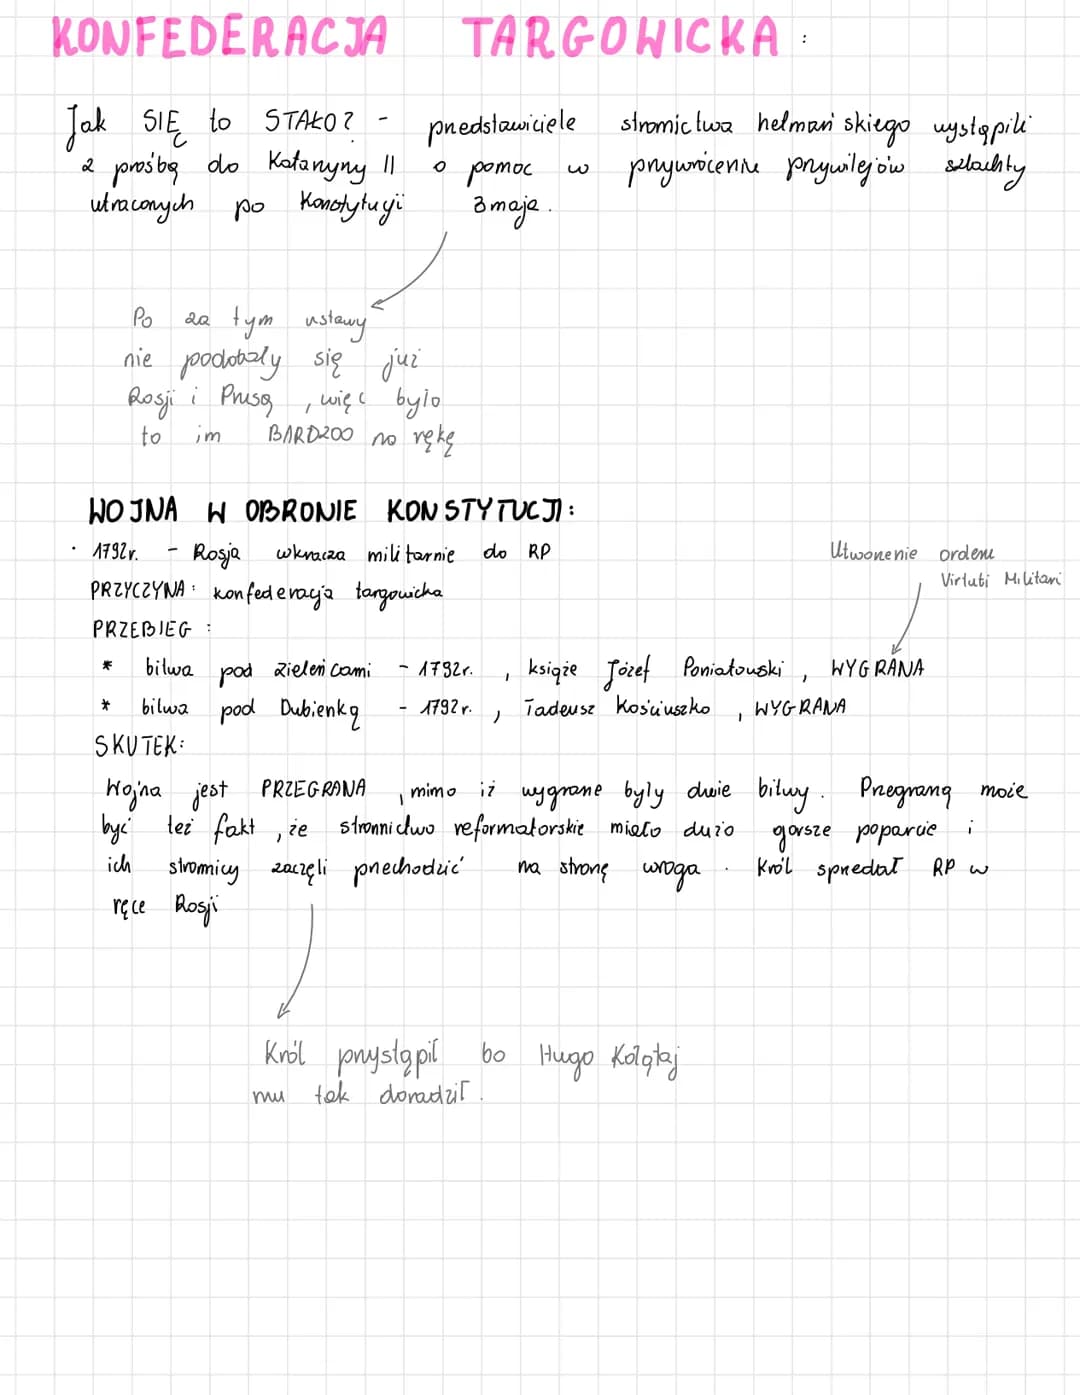 KONFEDERACJA TARGOWICKA :
Jak SIĘ to STAŁO? - przedstawiciele stronnictwa hetmańskiego wystąpili
z prośbą do Katarzyny II o pomoc w przywróceniu przywilejów szlachty
utraconych po Konstytucji 3 maja.
Po za tym ustawy
nie podobały się już
Rosji i Prusą, więc było
to im BARDZOO na rękę
WOJNA W OBRONIE KONSTYTUCJI:
· 1792r. - Rosja wkracza militarnie do RP
Utworzenie orderu
Virtuti Militari
PRZYCZYNA: konfederacja targowicka
PRZEBIEG :
* bitwa pod Zieleńcami - 1792r. , książe Józef Poniatowski , WYGRANA
* bitwa pod Dubienką - 1792r. , Tadeusz Kościuszko , WYGRANA
SKUTEK:
Wojna jest PRZEGRANA , mimo iż wygrane były dwie bitwy. Przegraną może
być też fakt , że stronnictwo reformatorskie miało dużo gorsze poparcie i
ich stronnicy zaczęli przechodzić na stronę wroga . Król sprzedał RP w
ręce Rosji
Król przystąpił bo Hugo Kołątaj
mu tak doradził.